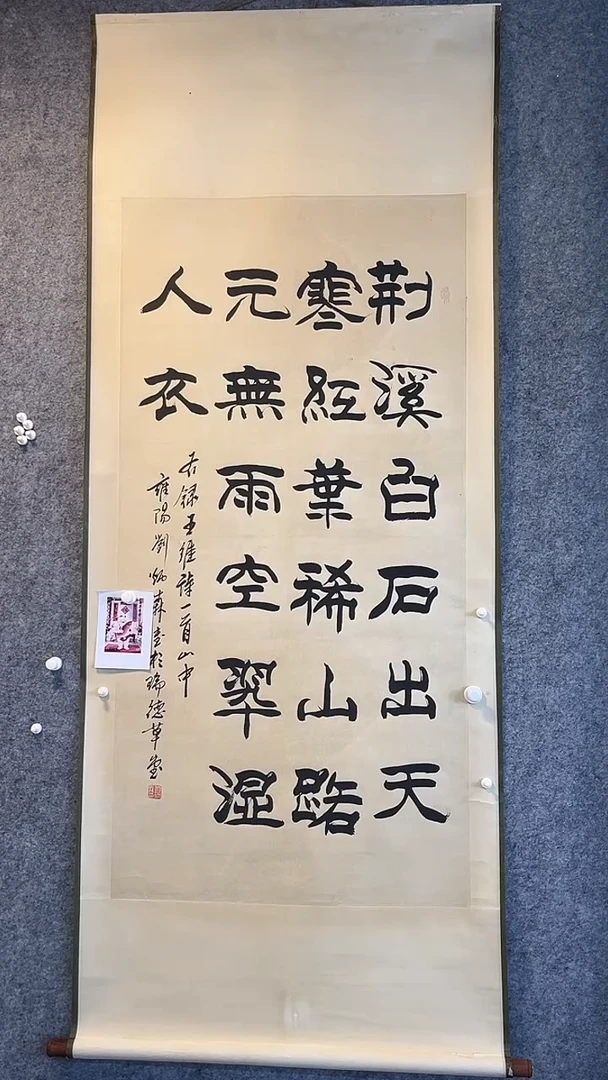 荆溪白石出天
寒紅葉稀山路
元無雨空翠湿
人衣
右録王維詩一首山中
雍陽劉炳森書於瑞德草堂